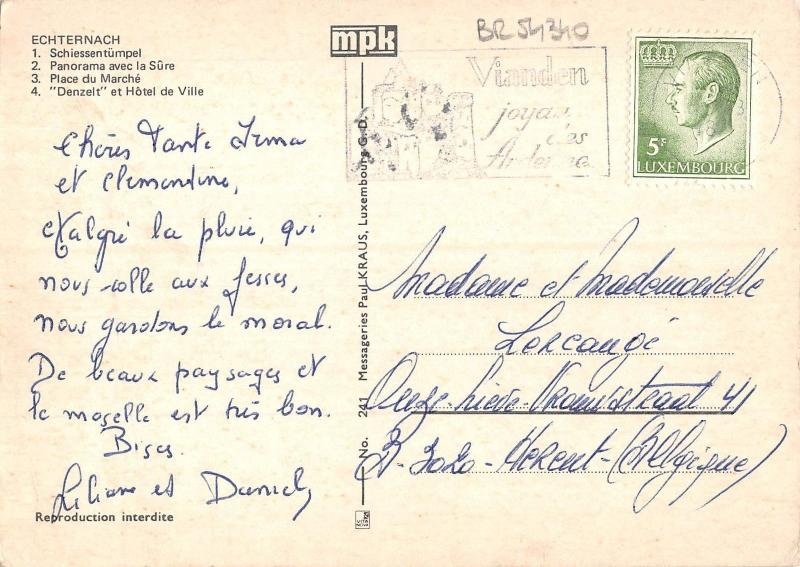 ECHTERNACH
1. Schiessentümpel
2. Panorama avec la Sûre
3. Place du Marché
4. "Denzelt" et Hôtel de Ville
Chères Tante Irma
et Clémentine,
Malgré la pluie, qui
nous colle aux fesses,
nous gardons le moral.
De beaux paysages et
le moselle est très bon.
Bises
Liliane et Daniel
Reproduction interdite
mpk
No. 241 Messageries Paul KRAUS, Luxembourg G.D.
BR 54340
Vianden
joyau
des
Ardennes
5F
LUXEMBOURG
Madame et Mademoiselle
Lorcangé
Onze-Lieve-Vrouwstraat 41
B-3020-HERENT-(Belgique)